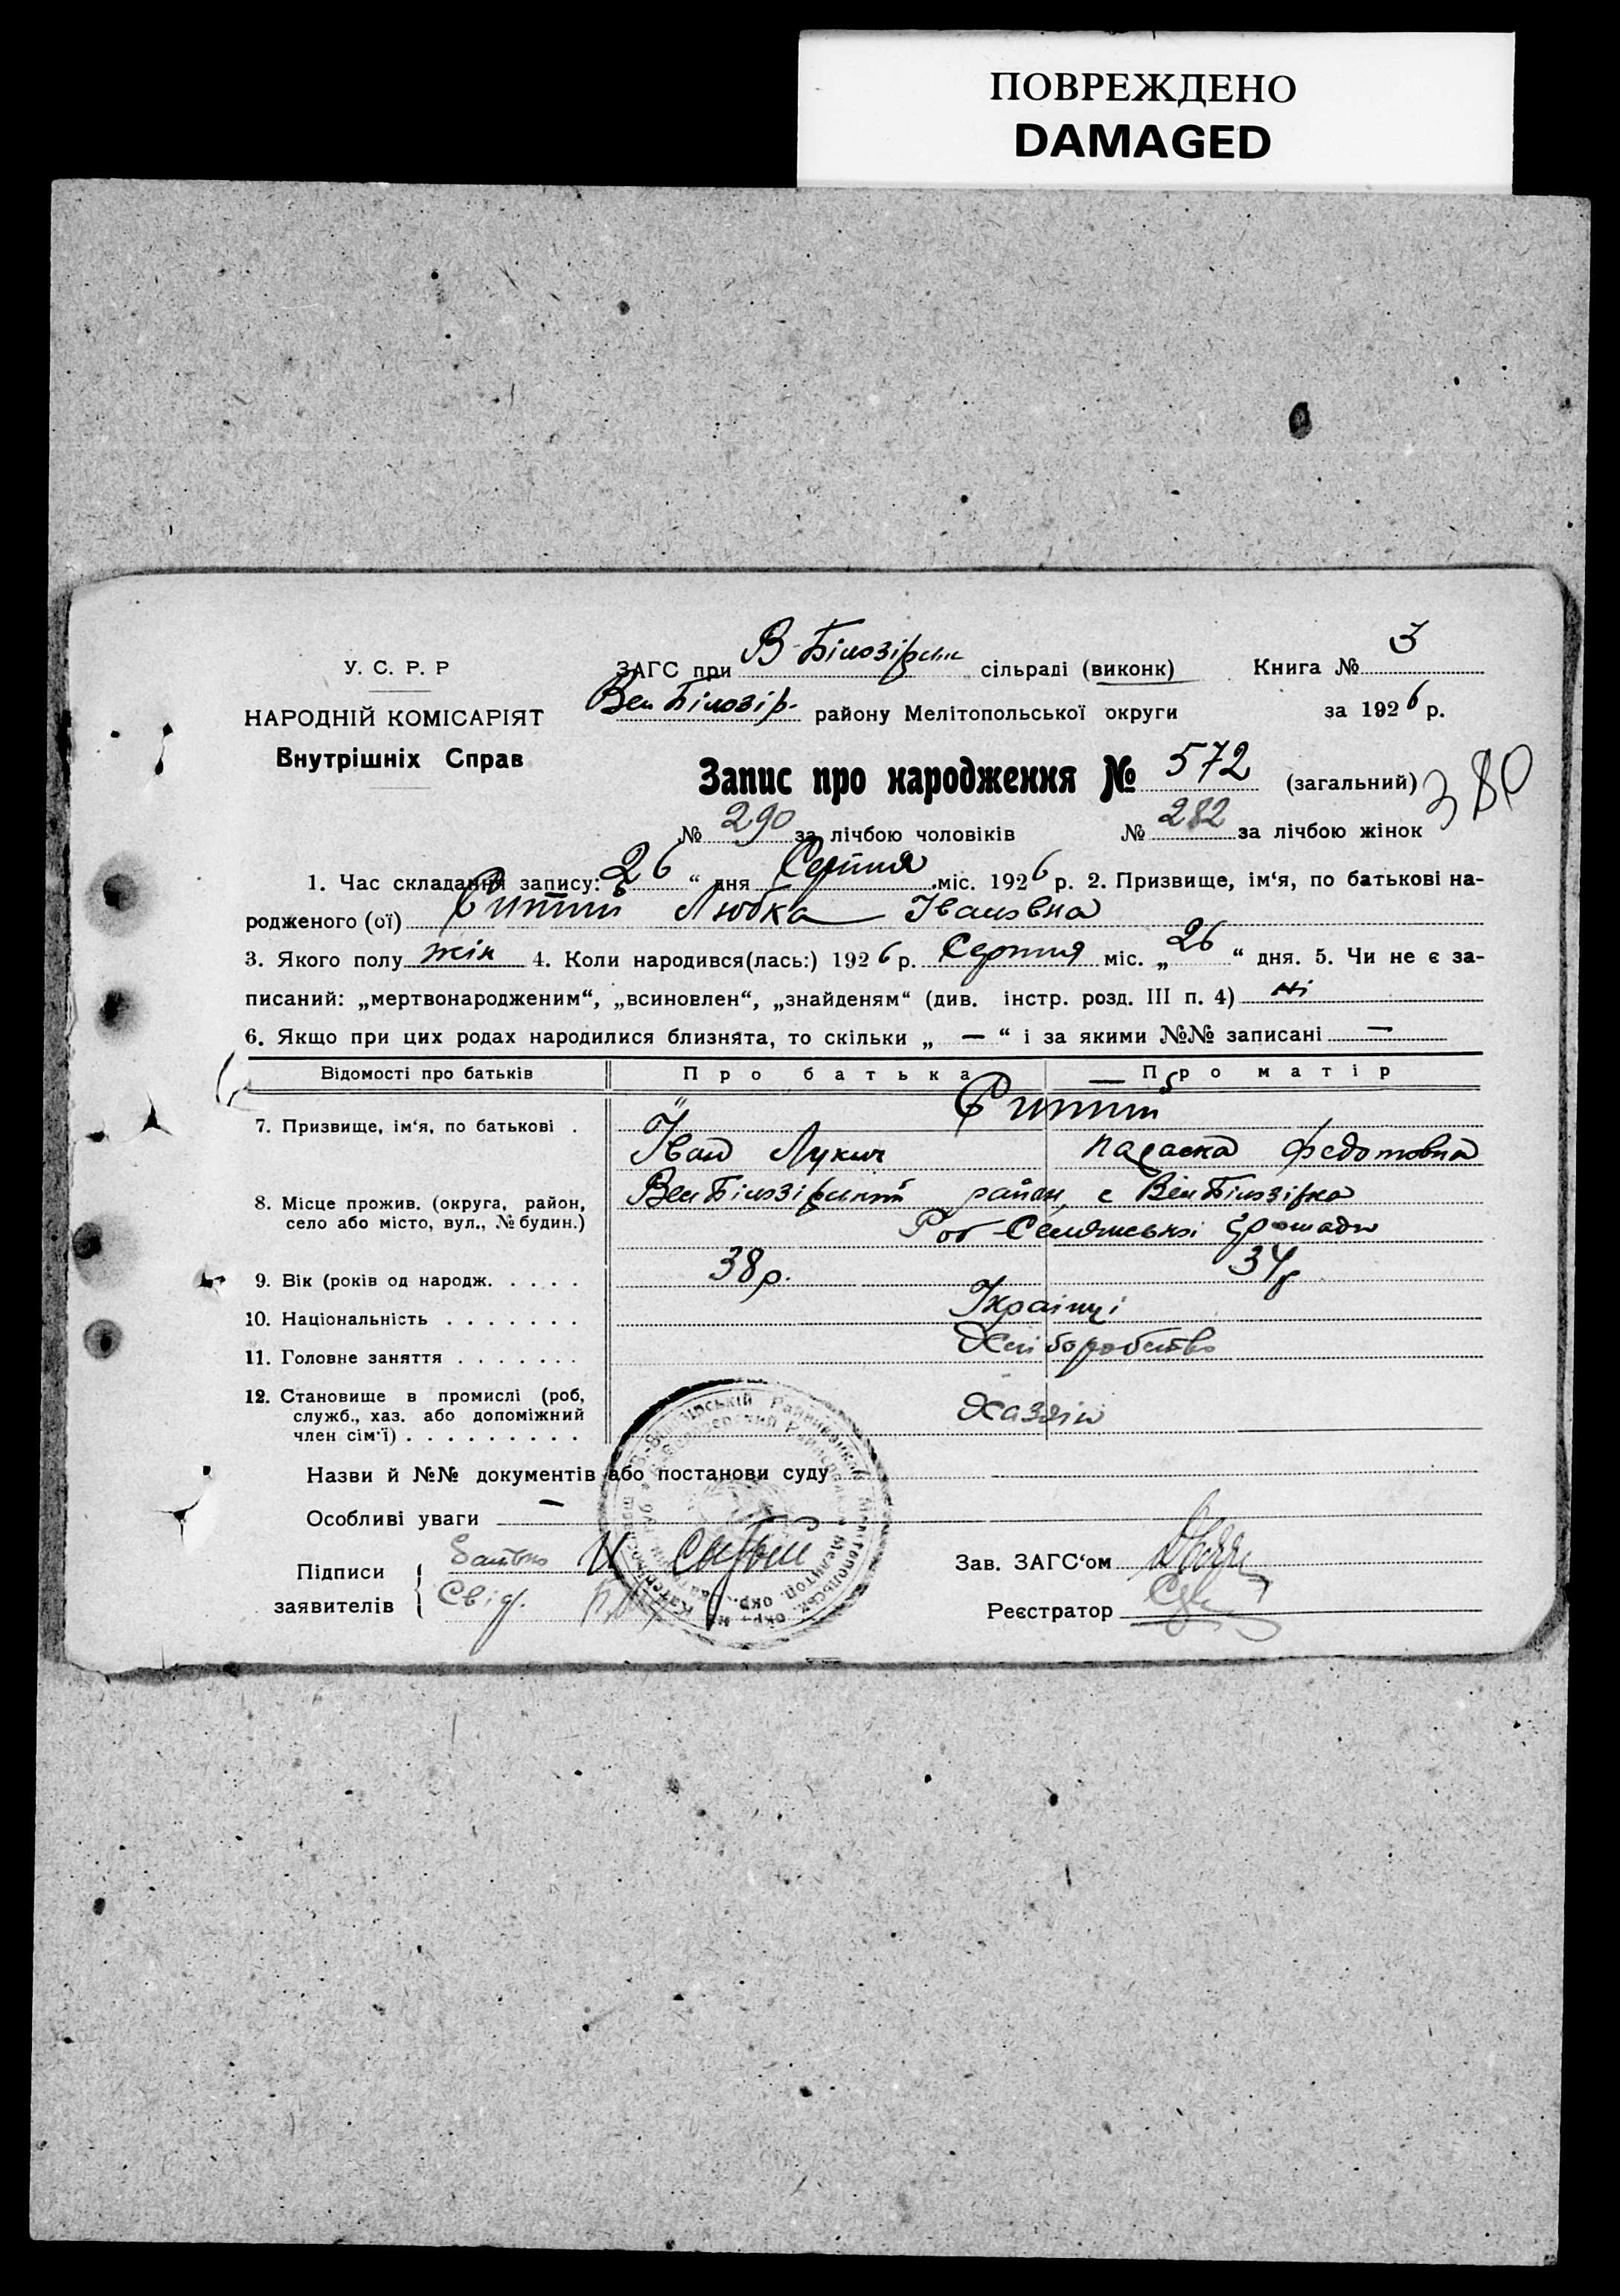 ПОВРЕЖДЕНО
DAMAGED
У. С. Р. Р
ЗАГС при В-Білозірськ сільраді (виконк) Книга № 3
НАРОДНІЙ КОМІСАРІЯТ Вел Білозір. району Мелітопольської округи за 1926 р.
Внутрішніх Справ
Запис про народження № 572 (загальний) 380
№ 290 за лічбою чоловіків № 282 за лічбою жінок
1. Час складання запису: 26 “ дня Серпня міс. 1926 р. 2. Призвище, ім‘я, по батькові на-
родженого (ої) Ситий Любка Івановна
3. Якого полу жін 4. Коли народився(лась:) 1926 р. Серпня міс. „ 26 “ дня. 5. Чи не є за-
писаний: „мертвонародженим“, „всиновлен“, „знайденям“ (див. інстр. розд. III п. 4) ні
6. Якщо при цих родах народилися близнята, то скільки „ — “ і за якими №№ записані —
Відомості про батьків Про батька Про матір
7. Призвище, ім‘я, по батькові . Ситий
Іван Лукич Параска Федотовна
8. Місце прожив. (округа, район, Вел Білозірський район, с Вел Білозірка
село або місто, вул., № будин.) Роб-Селянської громади
9. Вік (років од народж. . . . . 38 р. 34 р
10. Національність . . . . . . . Українці
11. Головне заняття . . . . . . . Хліборобство
12. Становище в промислі (роб, Хазяін
служб., хаз. або допоміжний
член сім‘ї) . . . . . . . . .
Назви й №№ документів або постанови суду
Особливі уваги —
Підписи Батько И Сытый Зав. ЗАГС‘ом
заявителів Свід. Реєстратор